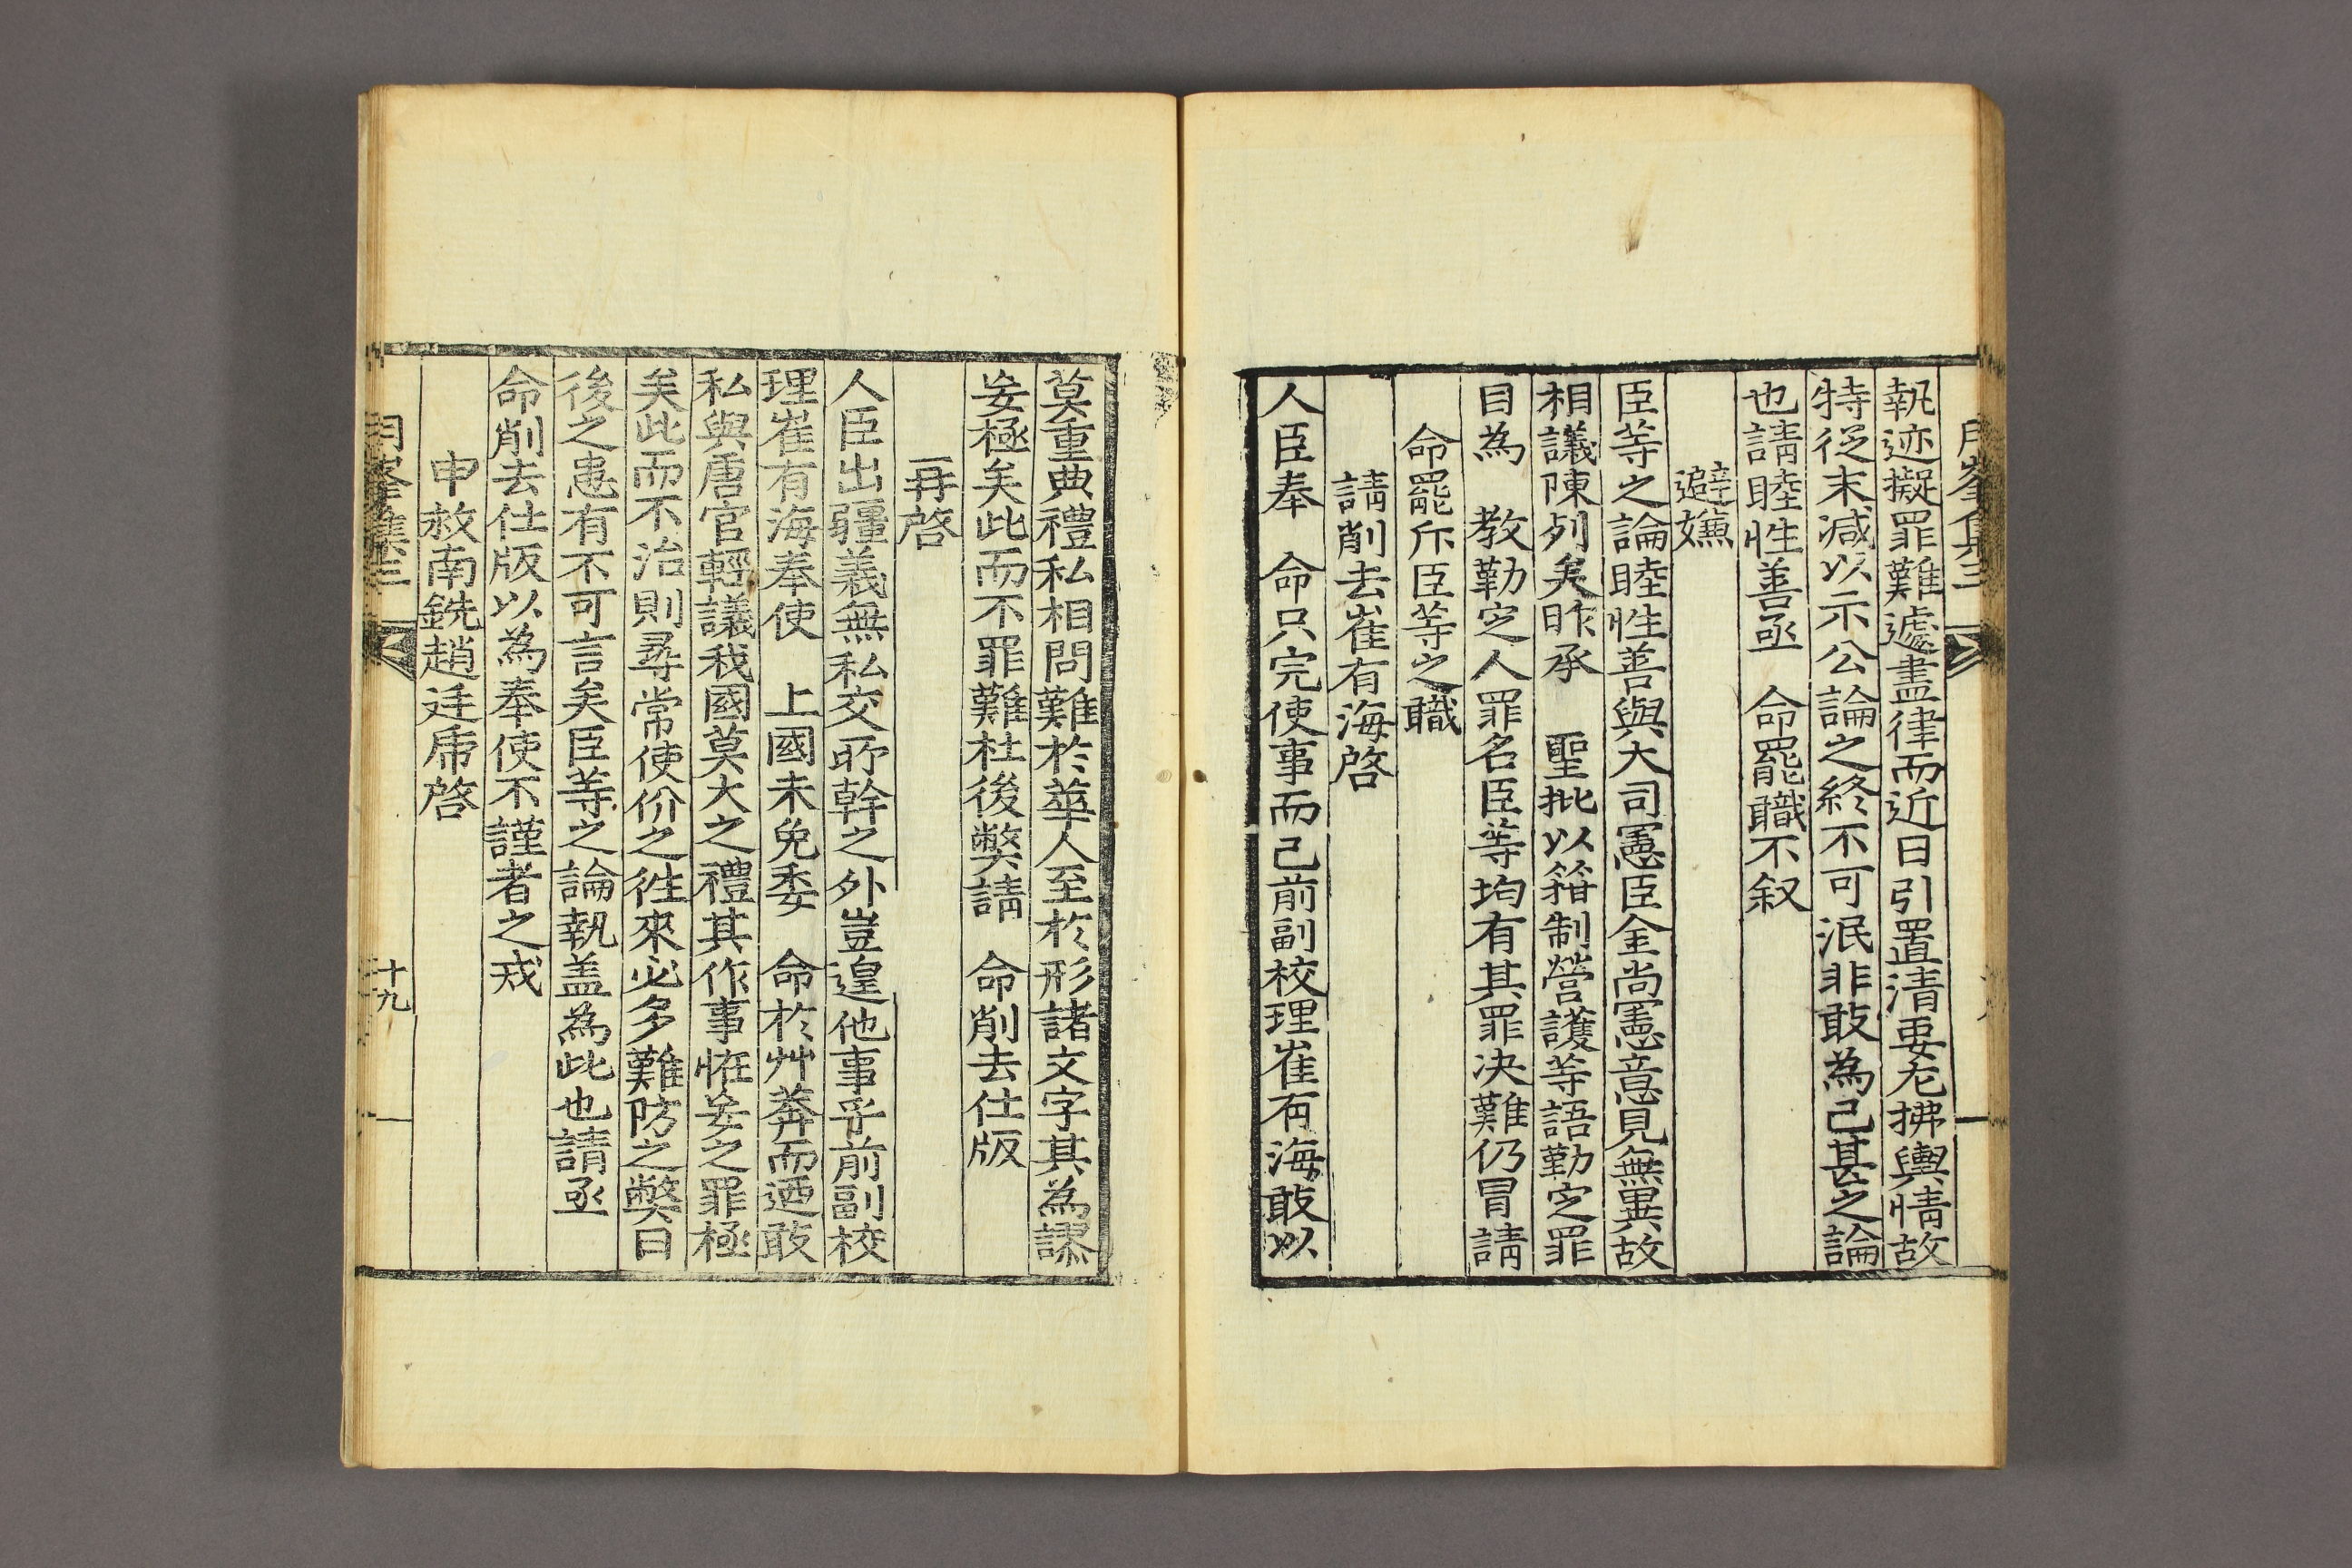 月峯集三
執迹擬罪難遽盡律而近日引置清要尤拂輿情故
特從末減以示公論之終不可泯非敢為已甚之論
也請睦性善亟　命罷職不叙
避嫌
臣等之論睦性善與大司憲臣金尚憲意見無異故
相議陳列矣昨承　聖批以箝制營護等語勤㝎罪
目為　教勤㝎人罪名臣等均有其罪决難仍冒請
命罷斥臣等之職
請削去崔有海啓
人臣奉　命只完使事而已前副校理崔有海敢以
莫重典禮私相問難於華人至於形諸文字其為謬
妄極矣此而不罪難杜後弊請　命削去仕版
再啓
人臣出疆義無私交所幹之外豈遑他事乎前副校
理崔有海奉使　上國未免委　命於艸莽而廼敢
私與唐官輕議我國莫大之禮其作事恠妄之罪極
矣此而不治則尋常使价之徃來必多難防之弊日
後之患有不可言矣臣等之論執盖為此也請亟
命削去仕版以為奉使不謹者之戒
申救南銑趙廷虎啓
月峯集三
十九